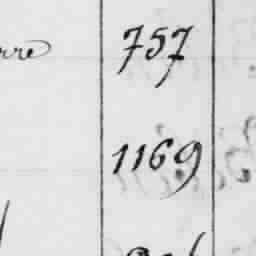 rre 757
1169